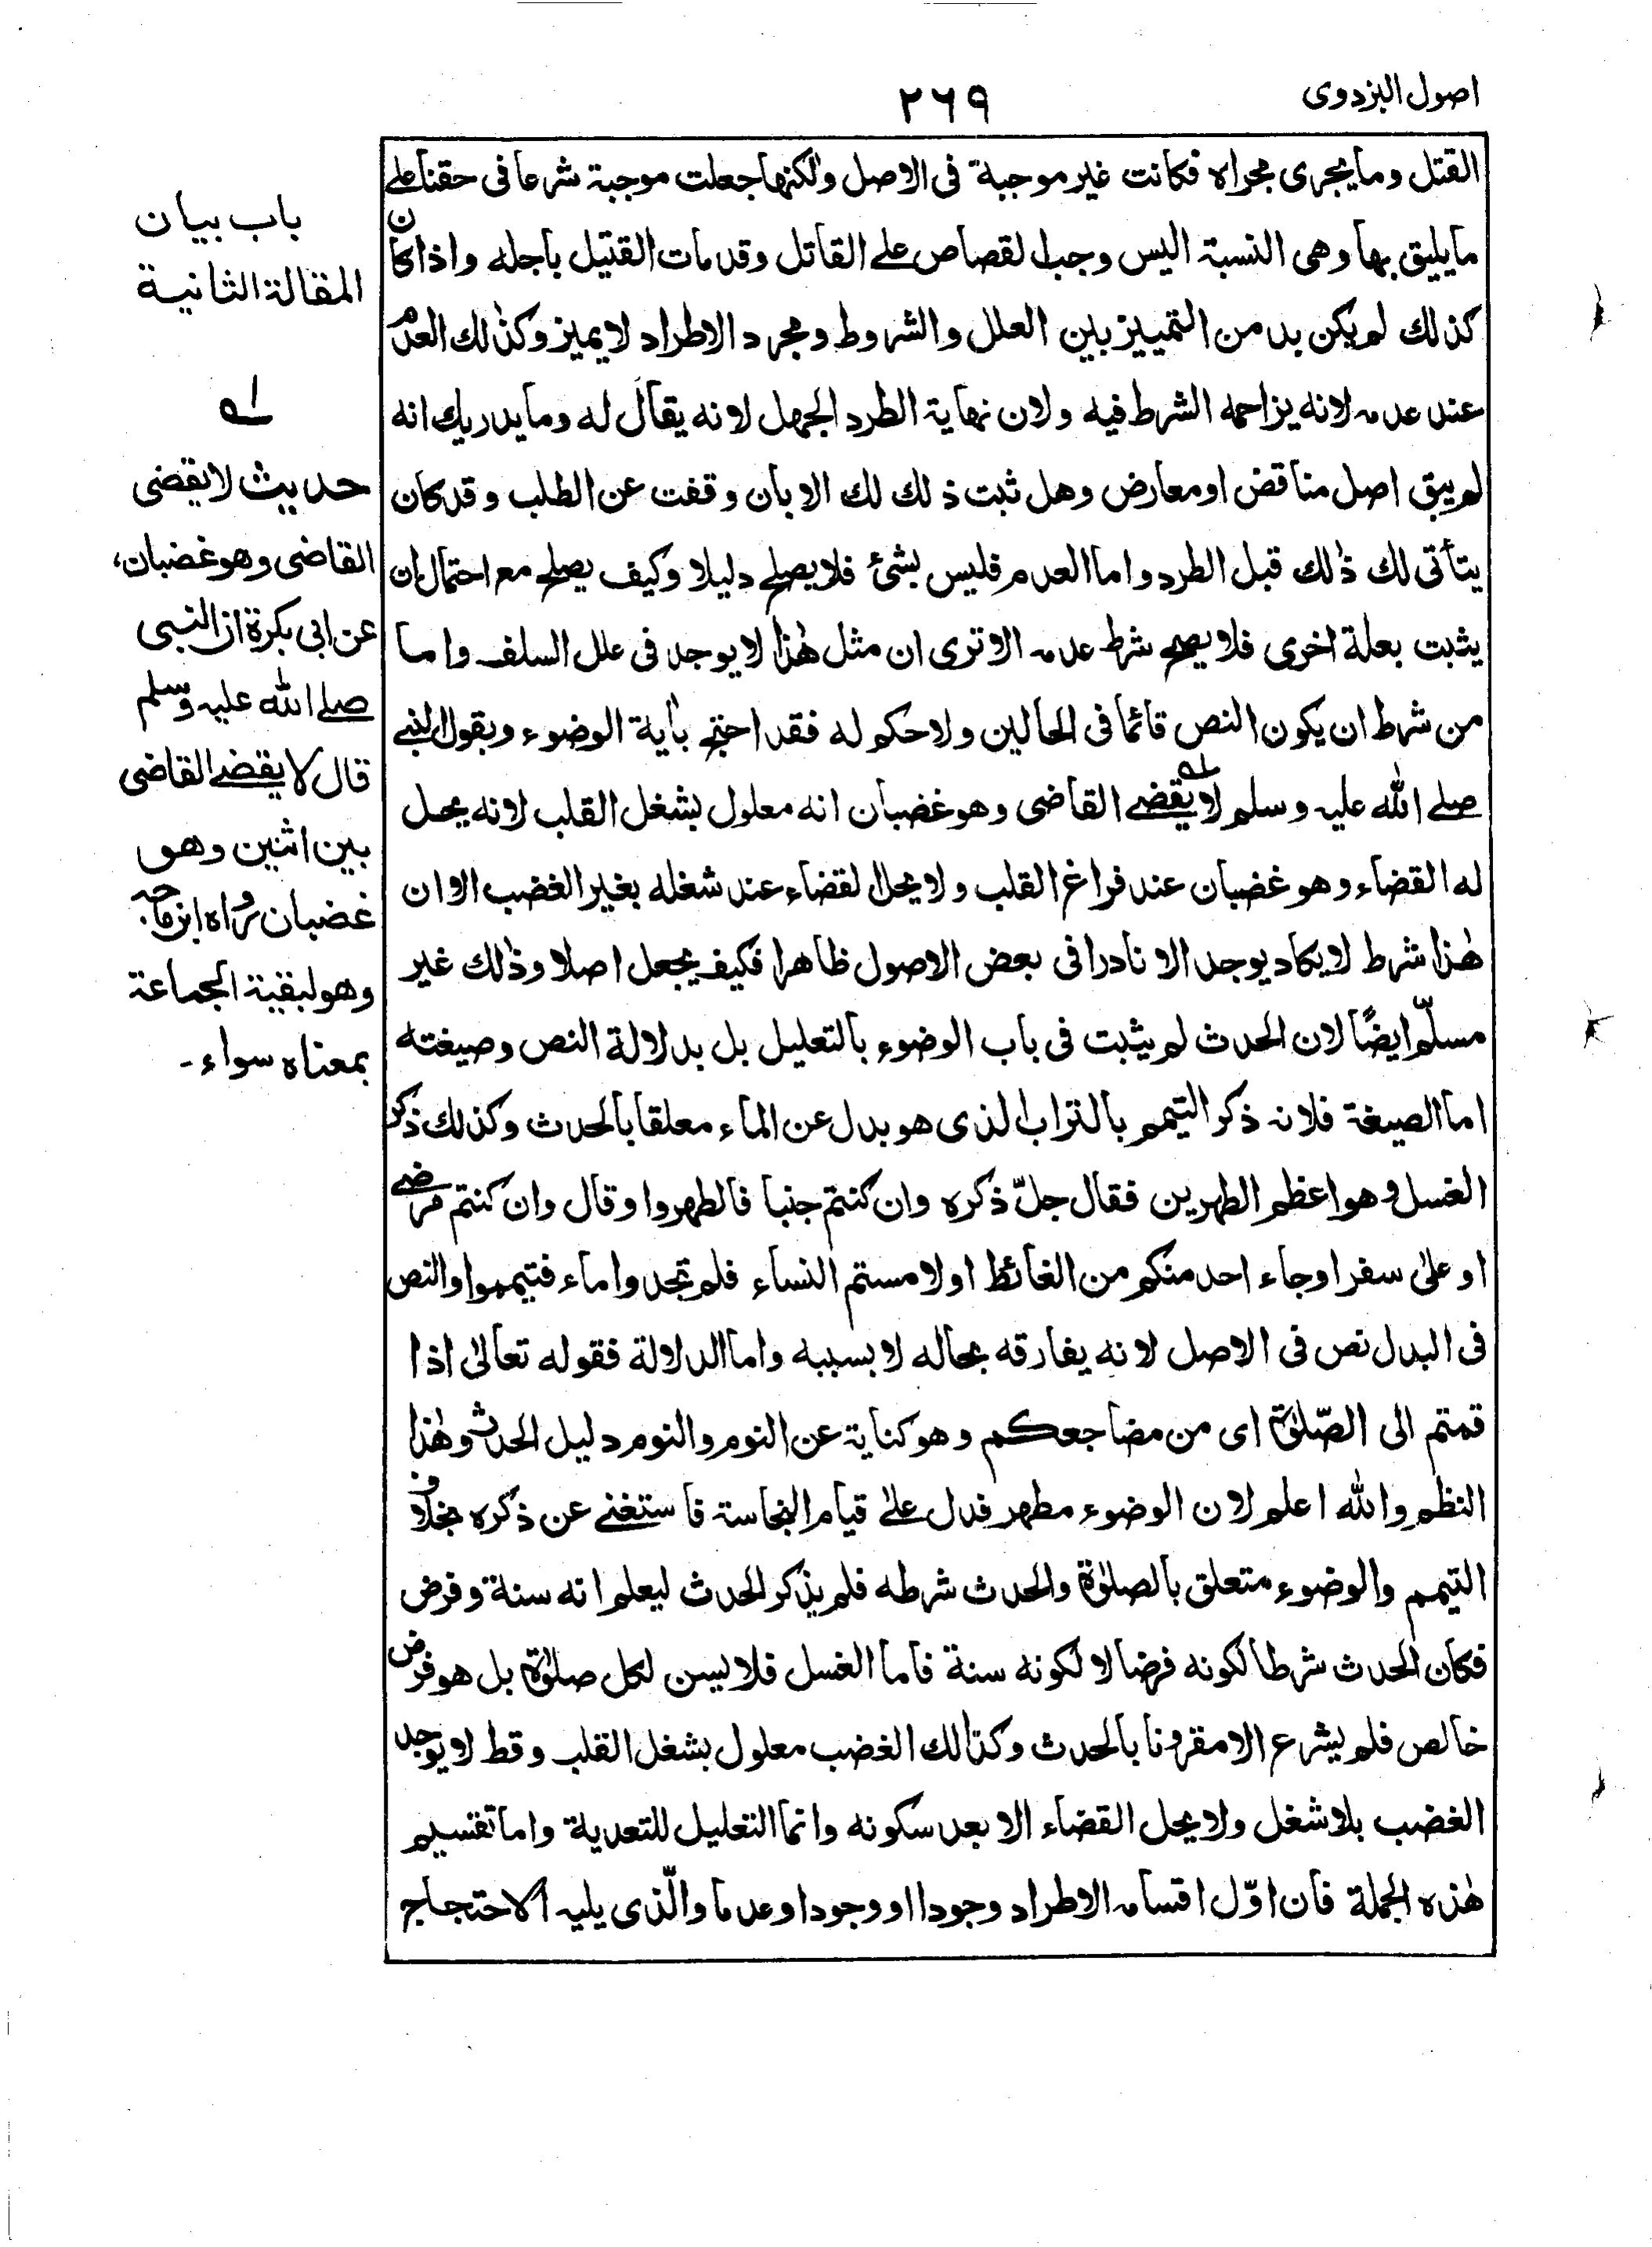 اصول البزدوى
٢٦٩
القتل وما يجرى مجراه فكانت غير موجبة فى الاصل ولكنها جعلت موجبة شرعا فى حقنا على
ما يليق بها وهى النسبة اليس وجب القصاص على القاتل وقد مات القتيل باجله واذا كان
كذلك لم يكن بد من التمييز بين العلل والشروط ومجرد الاطراد لا يميز وكذلك العدم
عند عدمه لانه يزاحمه الشرط فيه ولان نهاية الطرد الجهل لانه يقال له وما يدريك انه
لم يبق اصل مناقض او معارض وهل ثبت ذلك لك الا بان وقفت عن الطلب وقد كان
يتأتى لك ذلك قبل الطرد واما العدم فليس بشئ فلا يصلح دليلا وكيف يصلح مع احتمال ان
يثبت بعلة اخرى فلا يصح شرط عدمه الا ترى ان مثل هذا لا يوجد فى علل السلف واما
من شرط ان يكون النص قائما فى الحالين ولا حكم له فقد احتج بأية الوضوء وبقول النبى
صلى الله عليه وسلم لا يقضى القاضى وهو غضبان انه معلول بشغل القلب لانه يحل
له القضاء وهو غضبان عند فراغ القلب ولا يحل القضاء عند شغله بغير الغضب الا ان
هذا شرط لا يكاد يوجد الا نادرا فى بعض الاصول ظاهرا فكيف يجعل اصلا وذلك غير
مسلّم ايضًا لان الحدث لم يثبت فى باب الوضوء بالتعليل بل بدلالة النص وصيغته
اما الصيغة فلانه ذكر التيمم بالتراب الذى هو بدل عن الماء معلقا بالحدث وكذلك ذكر
الغسل وهو اعظم الطهرين فقال جلّ ذكره وان كنتم جنبا فاطهروا وقال وان كنتم مرضى
او على سفر او جاء احد منكم من الغائط او لامستم النساء فلم تجدوا ماء فتيمموا والنص
فى البدل نص فى الاصل لانه يفارقه بحاله لا بسببه واما الدلالة فقوله تعالى اذا
قمتم الى الصّلوٰة اى من مضاجعكم وهو كناية عن النوم والنوم دليل الحدث وهذا
النظم والله اعلم لان الوضوء مطهر فدل على قيام النجاسة فاستغنى عن ذكره بخلاف
التيمم والوضوء متعلق بالصلوٰة والحدث شرطه فلم يذكر الحدث ليعلم انه سنة وفرض
فكان الحدث شرطا لكونه فرضا لا لكونه سنة فاما الغسل فلا يسن لكل صلوٰة بل هو فرض
خالص فلم يشرع الا مقرونا بالحدث وكذالك الغضب معلول بشغل القلب وقط لا يوجد
الغضب بلا شغل ولا يحل القضاء الا بعد سكونه وانما التعليل للتعدية واما تقسيم
هذه الجملة فان اوّل اقسامه الاطراد وجودا او وجودا وعدما والّذى يليه الاحتجاج
باب بيان
المقالة الثانية
لے
حديث لا يقضى
القاضى وهو غضبان،
عن ابى بكرة ان النبى
صلى الله عليه وسلم
قال لا يقضى القاضى
بين اثنين وهو
غضبان رواه ابن ماجه
وهو لبقية الجماعة
بمعناه سواء -